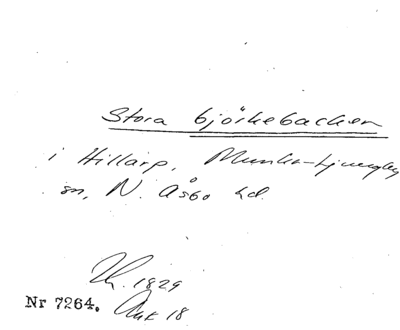 Stora björkebacken
i Hillarp, Munka-Ljungby
sn, N. Åsbo hd.
1829
Nr 7264. Akt 18